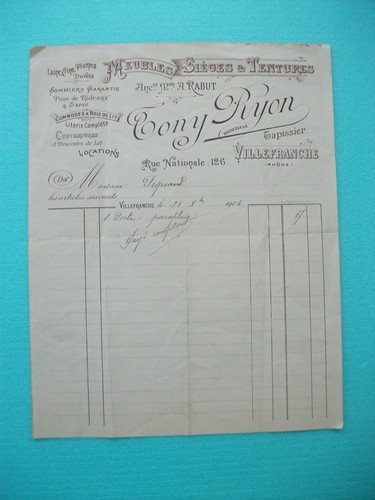 Meubles Sièges & Tentures
Laine, Crins, Plumes
Duvets
Sommiers Garantis
Pose de Rideaux
& Tapis
Commodes & Bois de Lit
Literie Complète
Couvertures
et Descentes de Lit
Locations
Ancne Mon A. Rabut
Tony Ryon
Successeur
Tapissier
Rue Nationale, 126
Villefranche
(Rhône)
Doit Monsieur
les articles suivants
Villefranche, le 31 Xbre 1904
1 Porte parapluie 17
Payé comptant